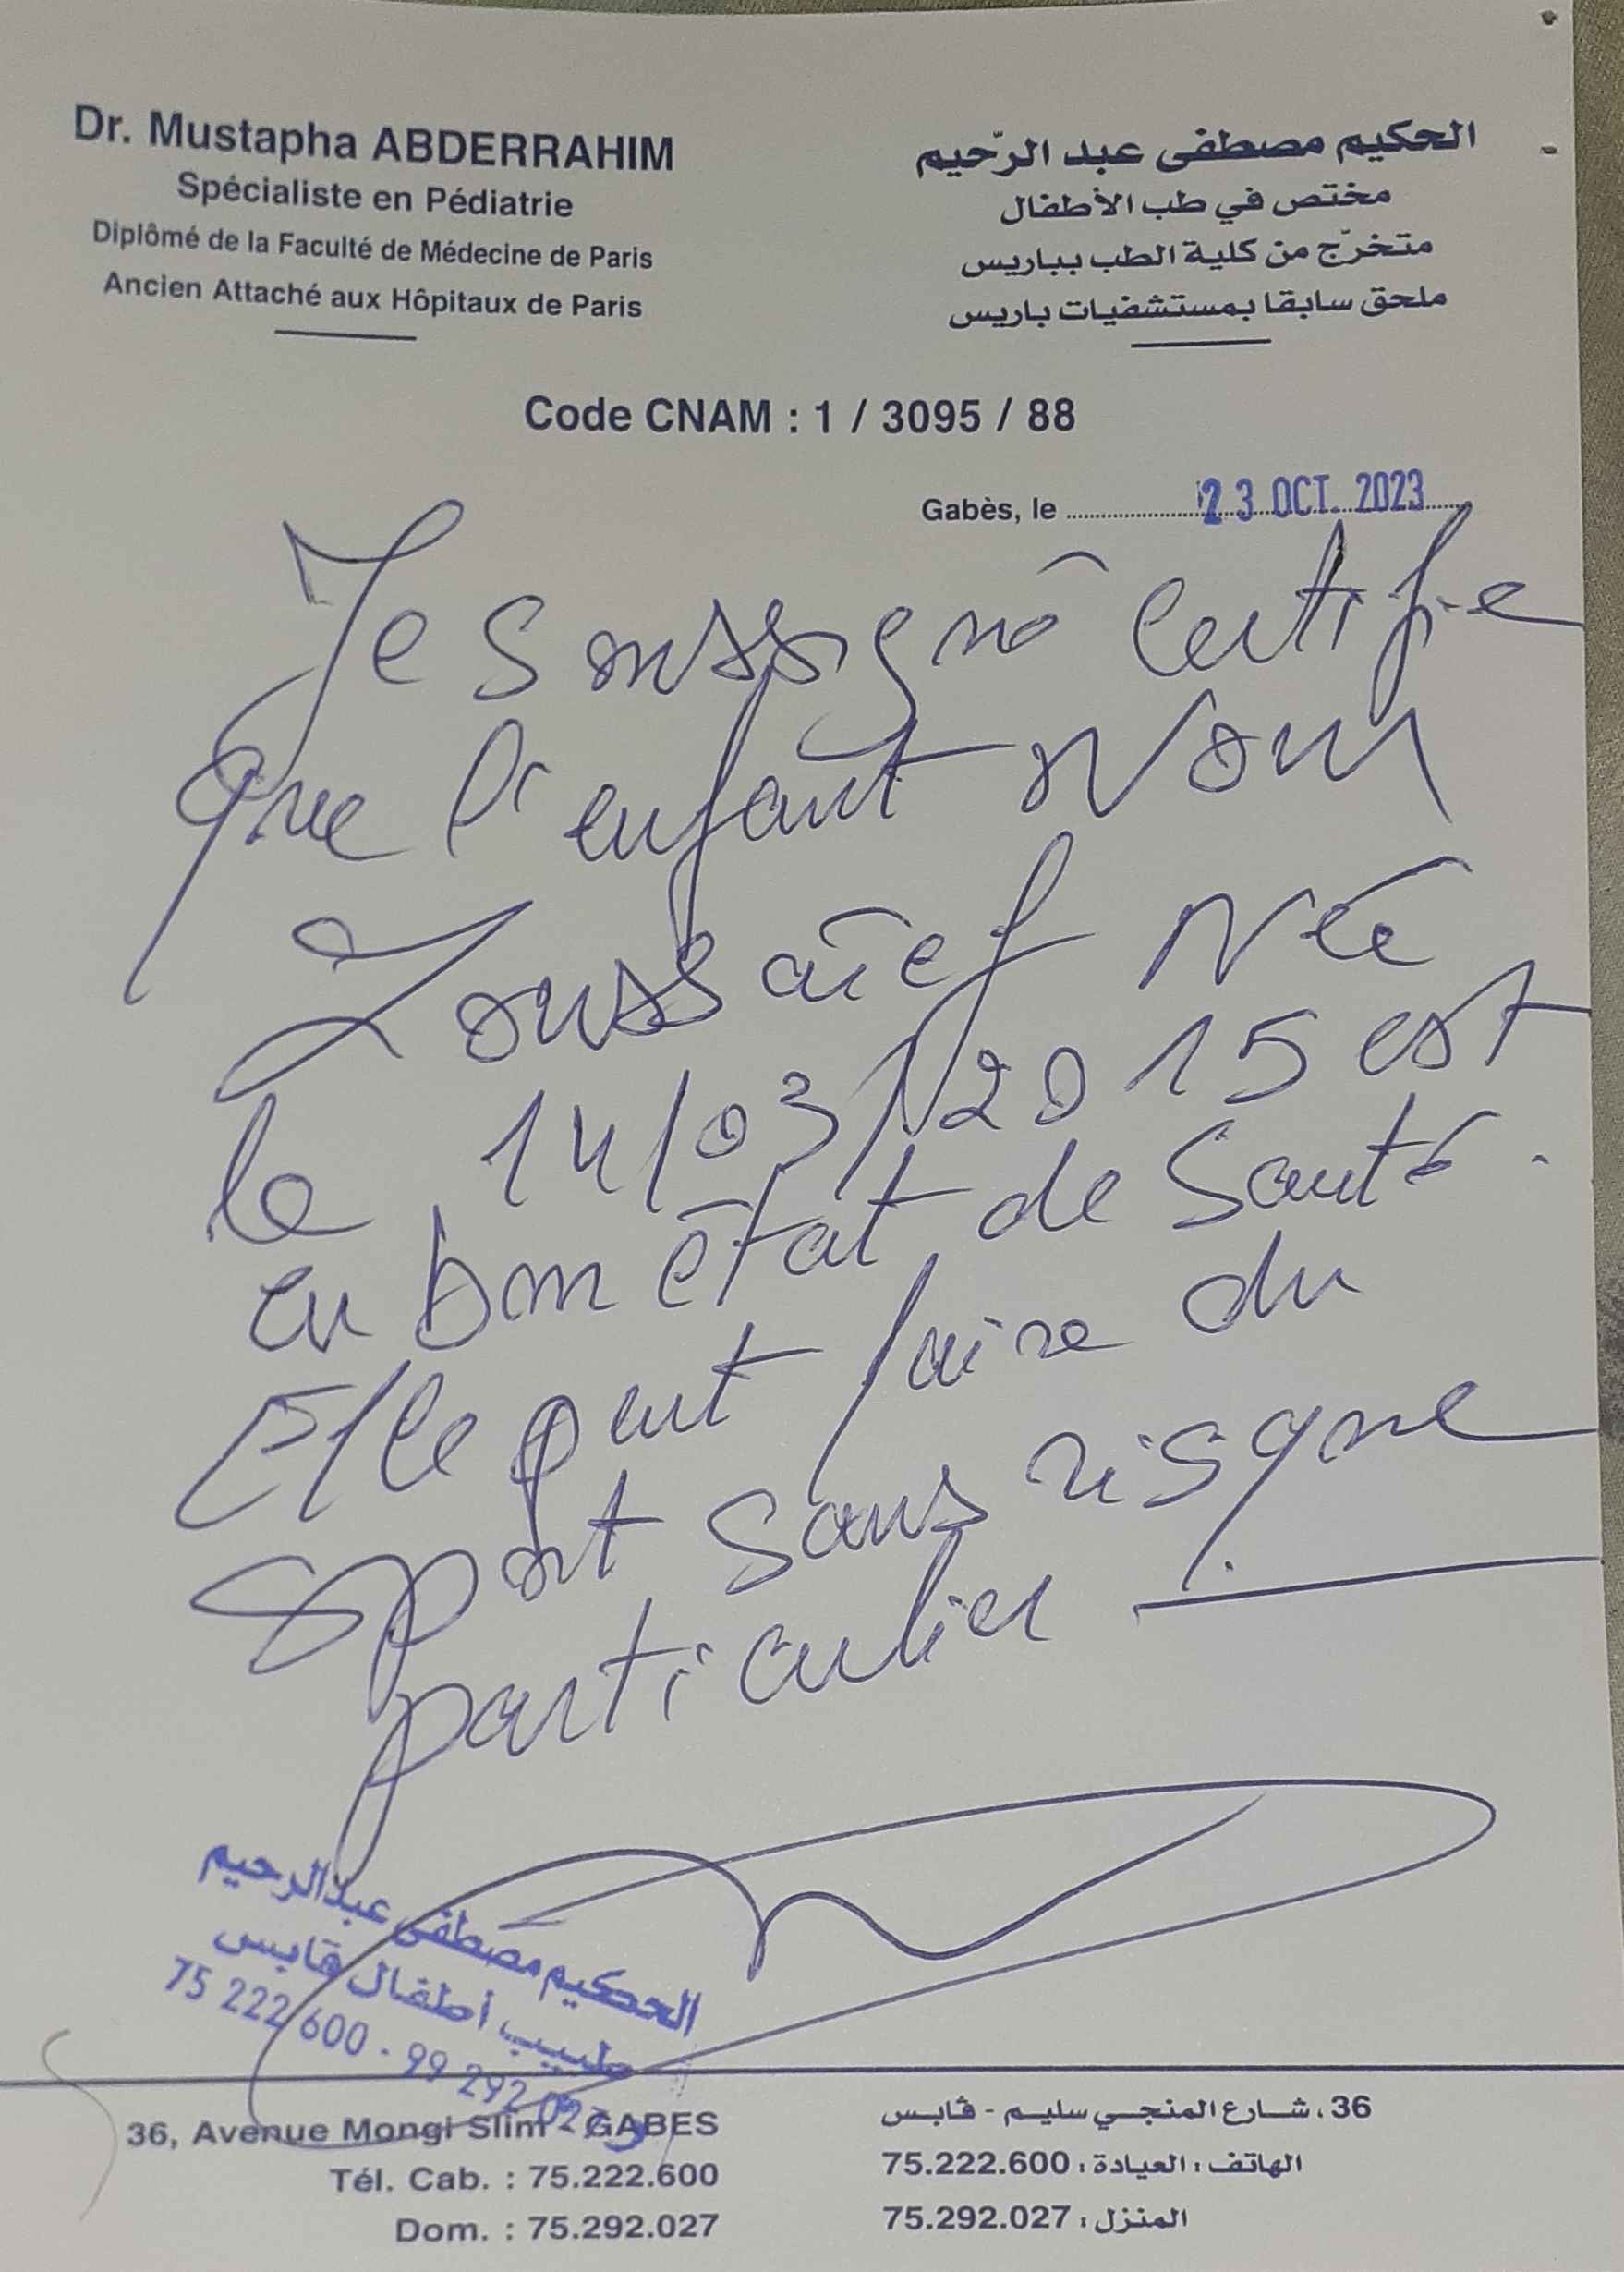 Dr. Mustapha ABDERRAHIM
Spécialiste en Pédiatrie
Diplômé de la Faculté de Médecine de Paris
Ancien Attaché aux Hôpitaux de Paris
الحكيم مصطفى عبد الرّحيم
مختص في طب الأطفال
متخرّج من كلية الطب بباريس
ملحق سابقا بمستشفيات باريس
Code CNAM : 1 / 3095 / 88
Gabès, le 23 OCT. 2023
Je soussigné certifie
que l'enfant Nour
Zoussaief Née
le 14/03/2015 est
en bon état de Santé.
Elle peut faire du
sport sans risque
particulier
الحكيم مصطفى عبد الرحيم
طبيب أطفال قابس
75 222 600 - 99 292 027
36, Avenue Mongi Slim - GABES
Tél. Cab. : 75.222.600
Dom. : 75.292.027
36، شارع المنجي سليم - قابس
الهاتف : العيادة : 75.222.600
المنزل : 75.292.027